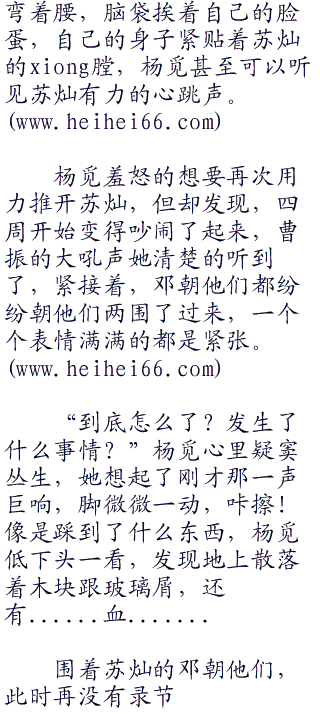 弯着腰，脑袋挨着自己的脸
蛋，自己的身子紧贴着苏灿
的xiong膛，杨觅甚至可以听
见苏灿有力的心跳声。
(www.heihei66.com)
杨觅羞怒的想要再次用
力推开苏灿，但却发现，四
周开始变得吵闹了起来，曹
振的大吼声她清楚的听到
了，紧接着，邓朝他们都纷
纷朝他们两围了过来，一个
个表情满满的都是紧张。
(www.heihei66.com)
“到底怎么了？发生了
什么事情？”杨觅心里疑窦
丛生，她想起了刚才那一声
巨响，脚微微一动，咔擦！
像是踩到了什么东西，杨觅
低下头一看，发现地上散落
着木块跟玻璃屑，还
有......血.......
围着苏灿的邓朝他们，
此时再没有录节